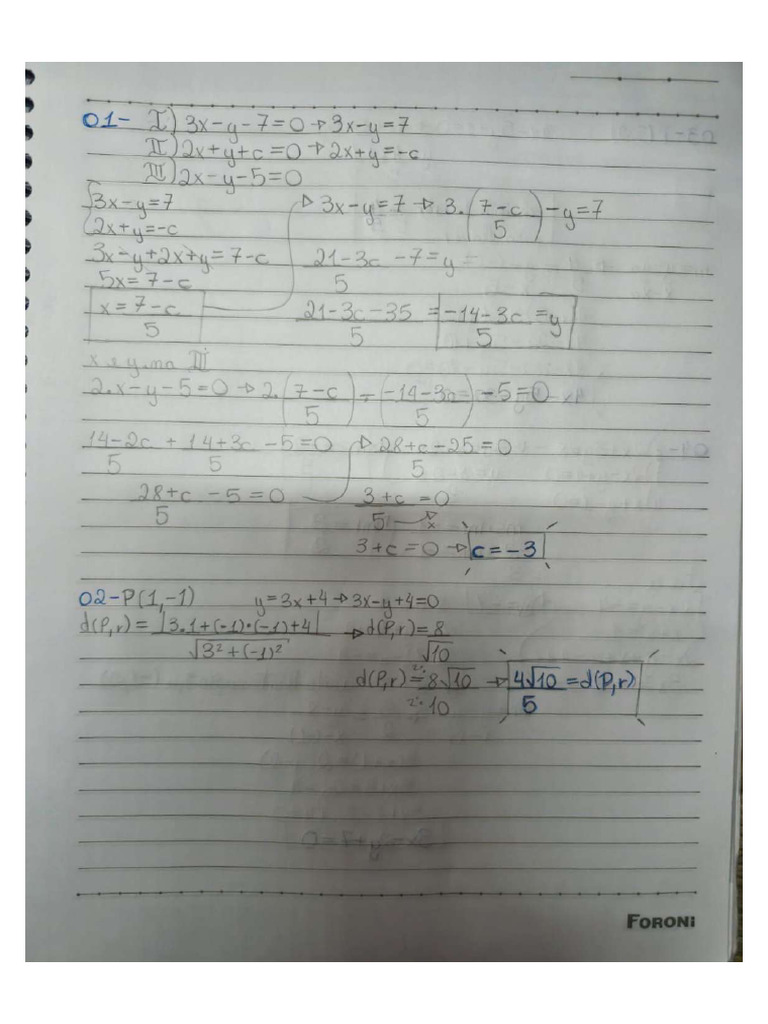 01- I) 3x-y-7=0 → 3x-y=7
II) 2x+y+c=0 → 2x+y=-c
III) 2x-y-5=0
{3x-y=7
{2x+y=-c
3x-y+2x+y=7-c
5x=7-c
x=7-c/5
→ 3x-y=7 → 3.(7-c/5)-y=7
21-3c/5 -7=y=
21-3c-35/5 = -14-3c/5 =y
x e y na III
2.x-y-5=0 → 2.(7-c/5)-(-14-3c/5)-5=0
14-2c/5 + 14+3c/5 -5=0
28+c/5 -5=0
→ 28+c-25/5=0
3+c/5=0
3+c=0 → c=-3
02- P(1,-1) y=3x+4 → 3x-y+4=0
d(P,r)=|3.1+(-1)·(-1)+4|/√3²+(-1)² → d(P,r)=8/√10
d(P,r)=8√10/10 → 4√10/5=d(P,r)
FORONI